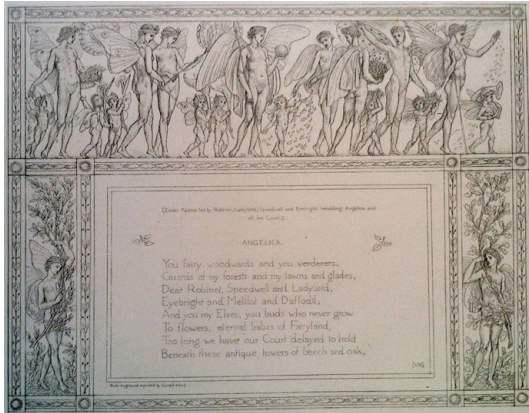 (Enter Fairies led by Robinet, Ladybird, Speedwell and Eyebright heralding Angelica and
all her Court.)
ANGELICA.
You fairy woodwards and you verderers,
Guards of my forests and my lawns and glades,
Dear Robinet, Speedwell and Ladybird,
Eyebright and Melilot and Daffodil;
And you my Elves, you buds who never grow
To flowers, eternal babies of Fairyland,
Too long we have our Court delayed to hold
Beneath these antique towers of beech and oak,